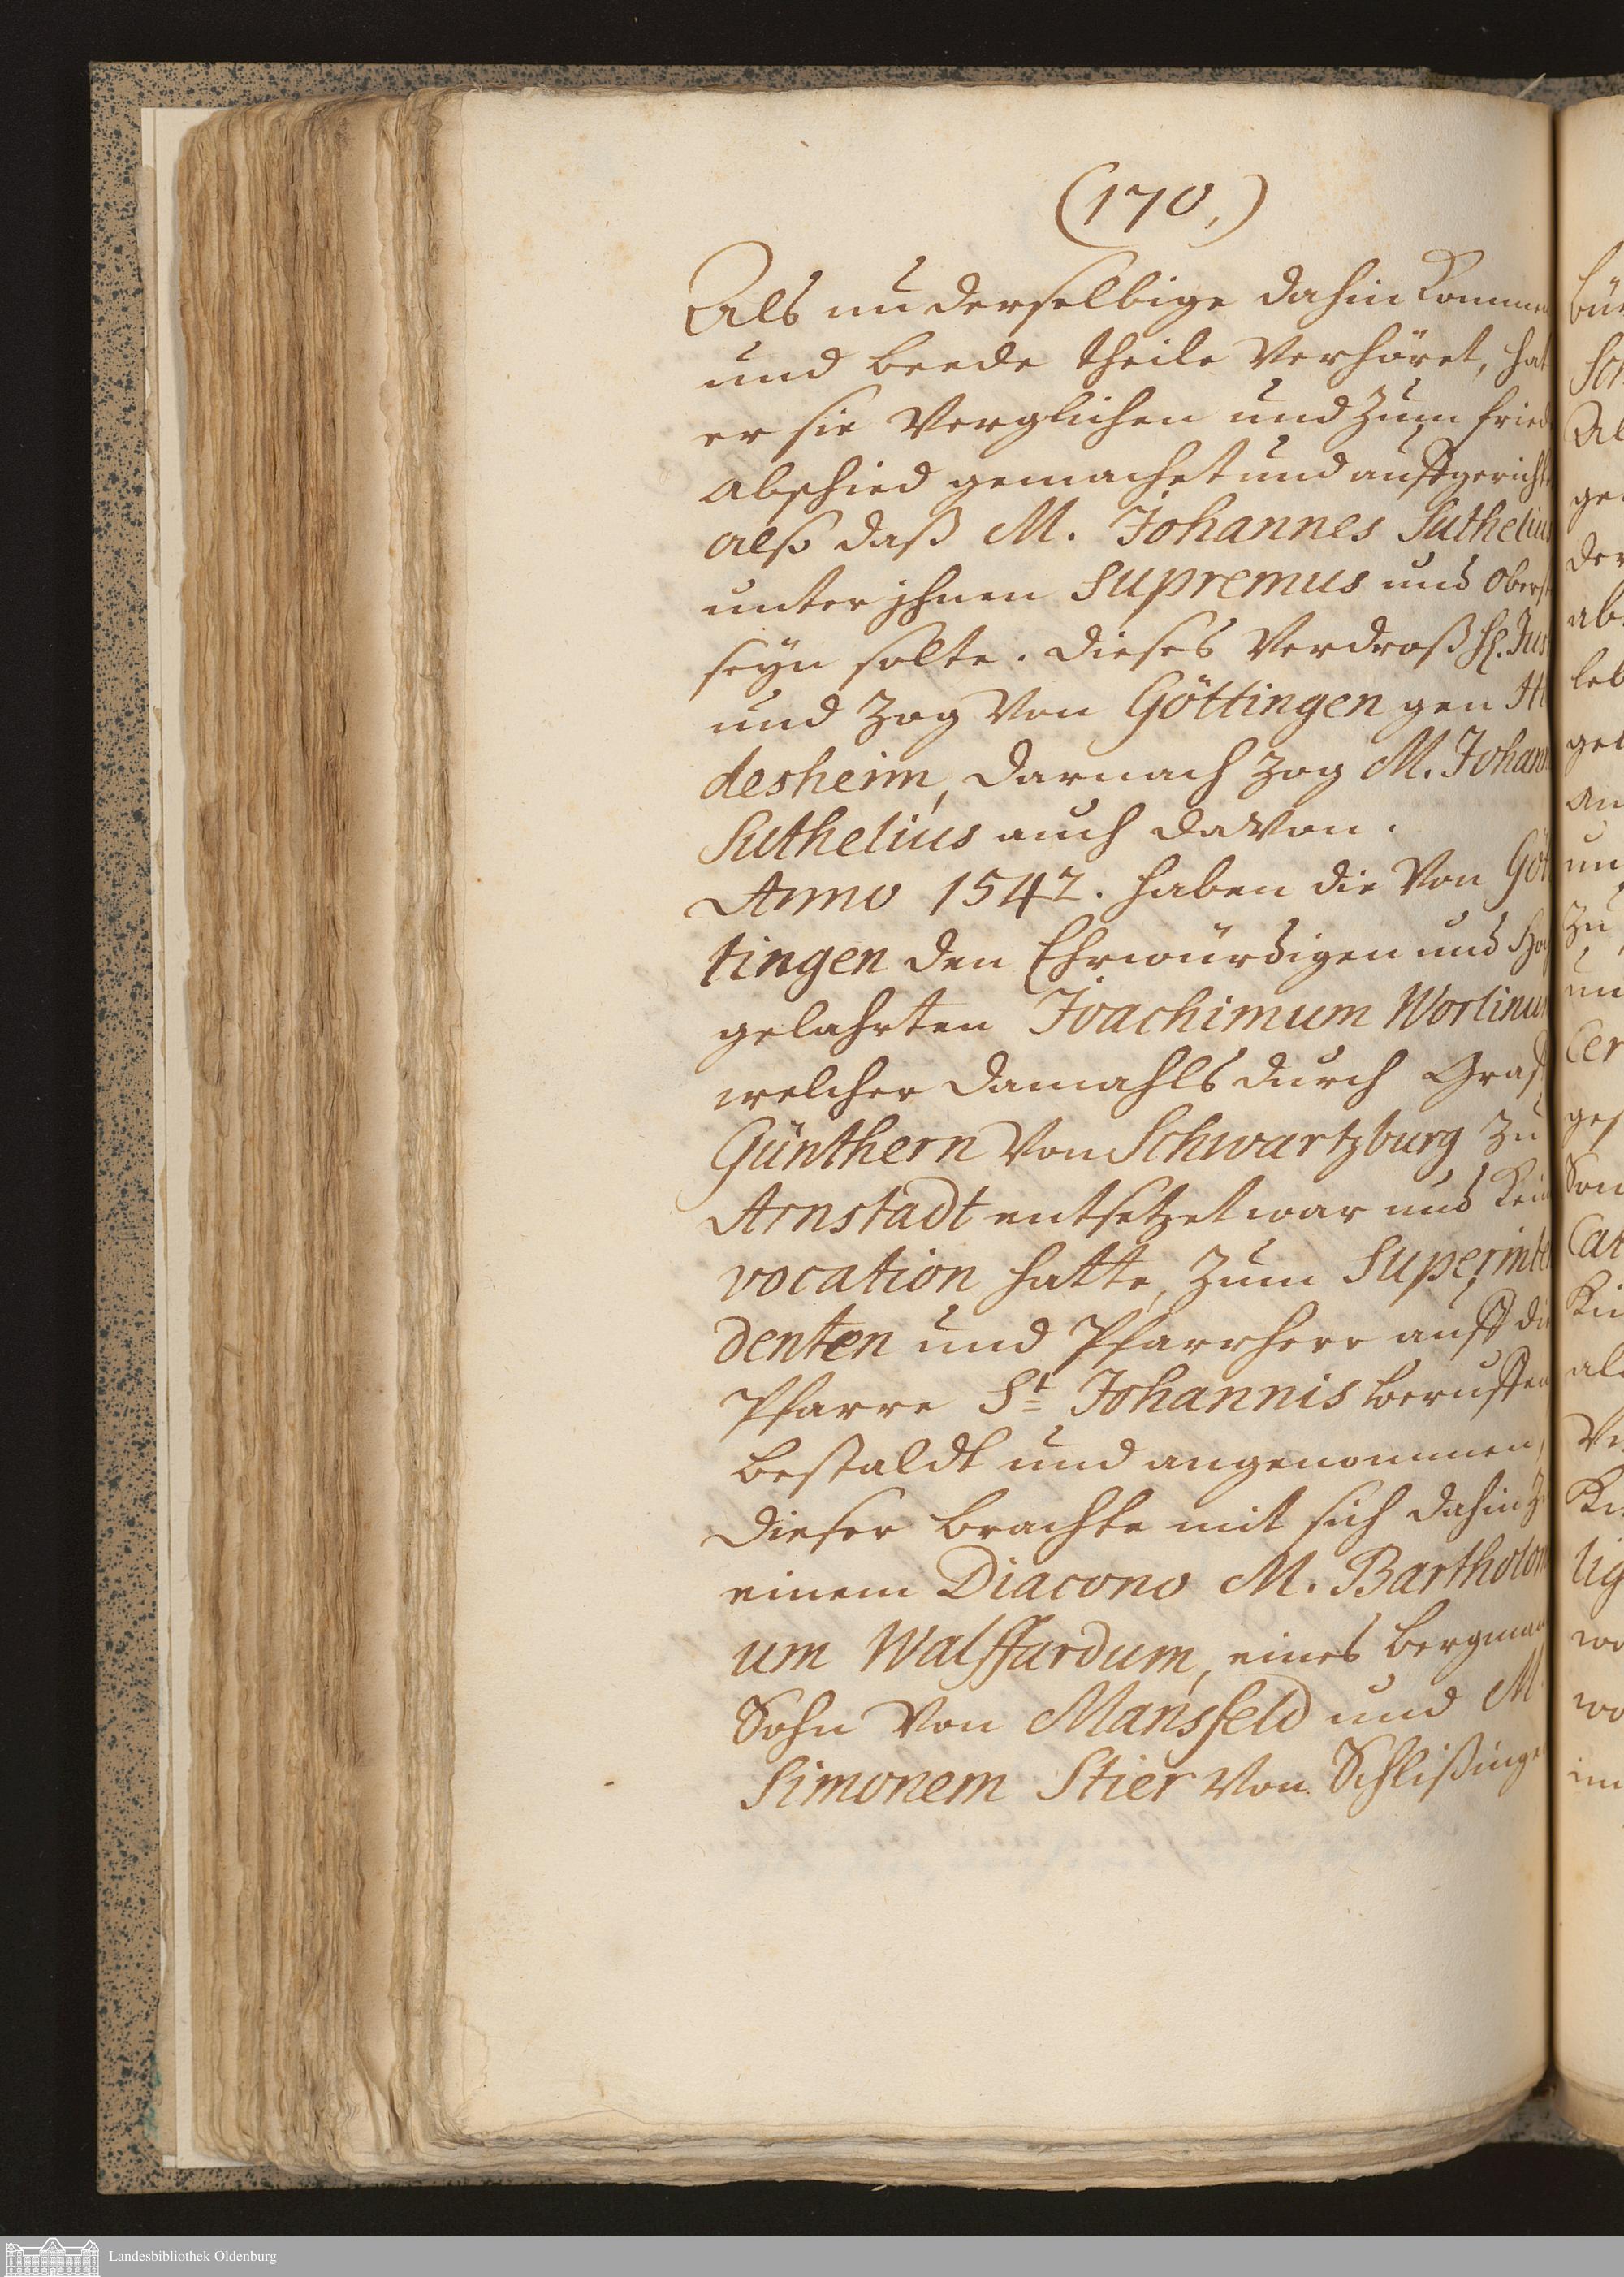 (170,)
Als nu derselbige dahin kommen
und beede theile Verhöret, hat
er sie Verglichen und zum fried
abschied gemachet und auffgericht
also daß M. Johannes Suthelius
unter ihnen Supremus und Oberst
seyn solte. Dieses Verdroß H. Jus
und zog Von Göttingen gen Hi
desheim, darnach zog M. Johann
Suthelius auch davon.
Anno 1542. haben die Von Göt
tingen den Ehrwürdigen und Ho
gelahrten Joachimum Morlinum
welcher damahls durch Graff
Günthern Von Schwartzburg zu
Arnstadt entsetzet war und kein
vocation hatte, zum Superinte
denten und Pfarrherr auff die
Pfarre St. Johannis beruffen
bestaldt und angenommen,
dieser brachte mit sich dahin zu
einem Diacono M. Bartholom
um Walffardum, eines Bergman
Sohn Von Mansfeld und M.
Simonem Stier Von Schlißingen
Landesbibliothek Oldenburg